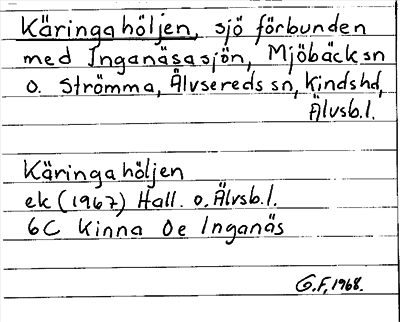 Käringahöljen, sjö förbunden
med Inganäsasjön, Mjöbäck sn
o. Strömma, Älvsereds sn, Kindshd,
Älvsb.l.
Käringahöljen
ek (1967) Hall. o. Älvsb.l.
6C Kinna 0e Inganäs
G.F, 1968.